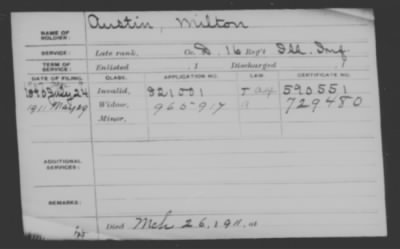 NAME OF
HOLDER:
Austin, Milton
SERVICE:
Late rank, Co. D. 16 Reg't Ill. Inf
TERM OF
SERVICE:
Enlisted , 1 Discharged , 1
DATE OF FILING. CLASS. APPLICATION NO. LAW CERTIFICATE NO.
1890 July 24 Invalid, 921001 590551
1911 May 29 Widow, 965917 729480
Minor,
ADDITIONAL
SERVICES:
REMARKS:
Died Mch 26, 1911, at